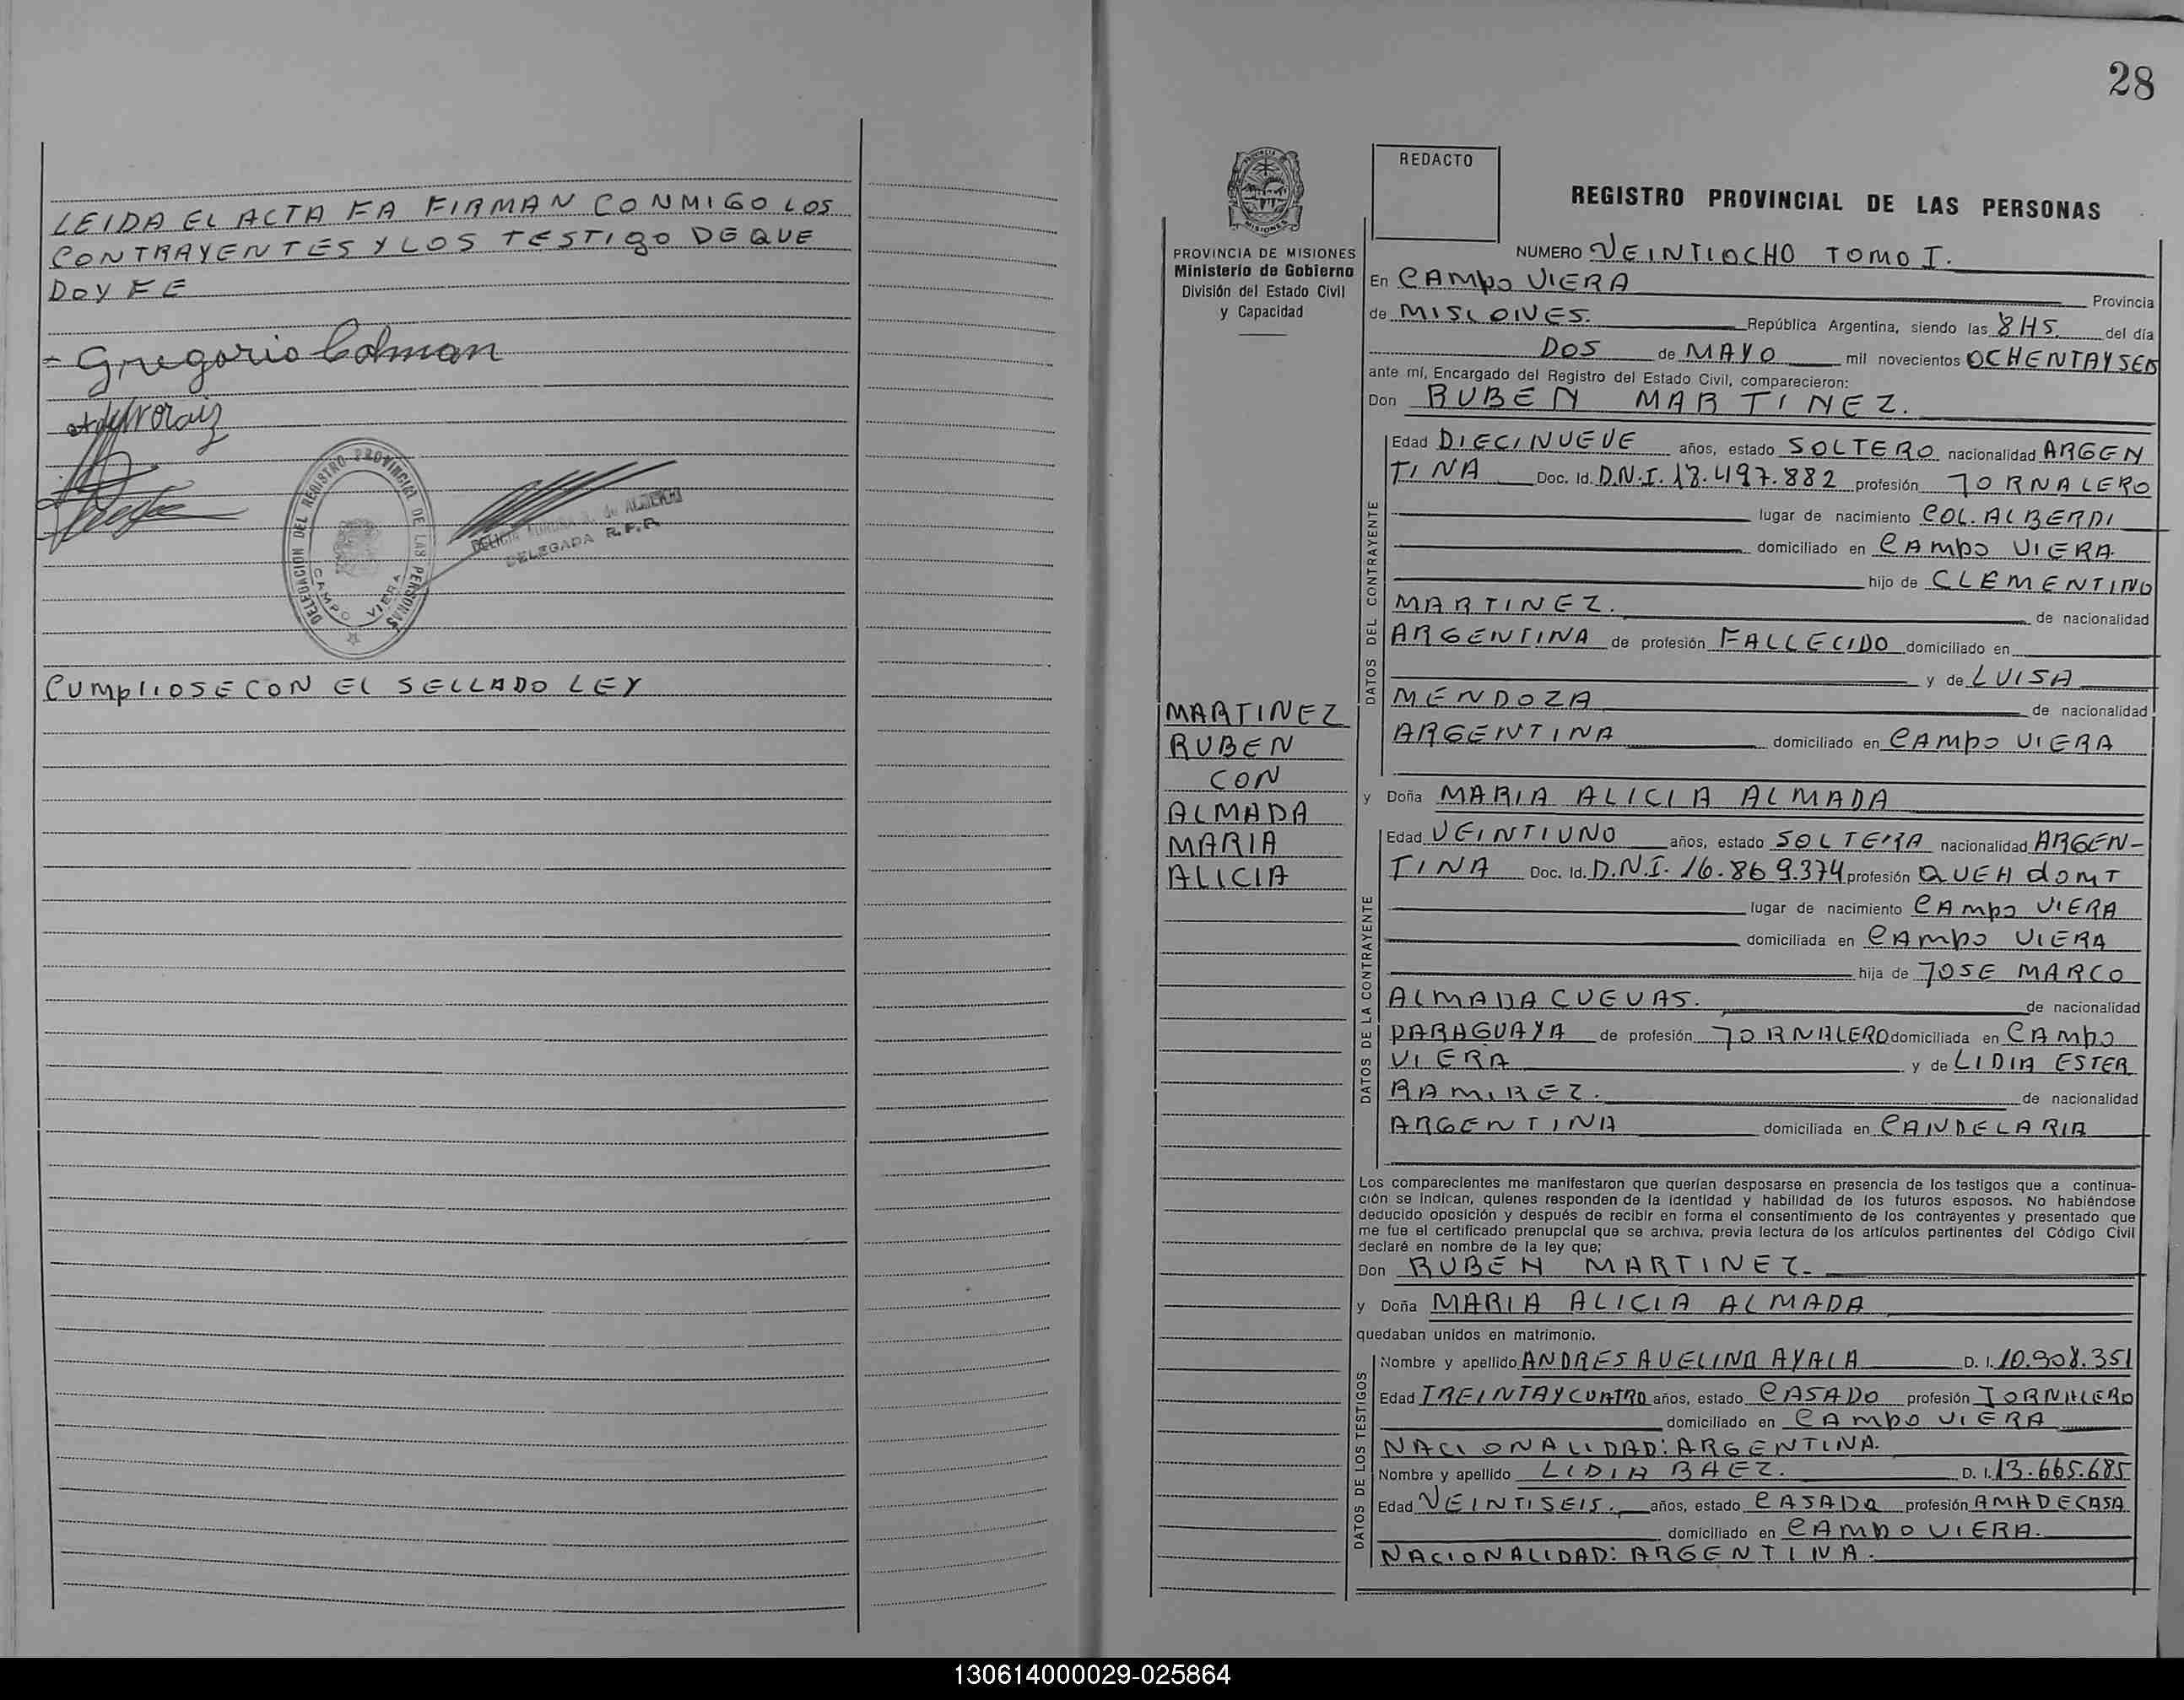 LEIDA EL ACTA FA FIRMAN CONMIGO LOS
CONTRAYENTES Y LOS TESTIGO DE QUE
DOY FE
Gregorio Colman
DELEGACION DEL REGISTRO PROVINCIAL DE LAS PERSONAS
CAMPO VIERA
DELEGADA R.P.P.
CUMPLIOSE CON EL SELLADO LEY
28
REDACTO
REGISTRO PROVINCIAL DE LAS PERSONAS
PROVINCIA DE MISIONES
Ministerio de Gobierno
División del Estado Civil
y Capacidad
MARTINEZ
RUBEN
CON
ALMADA
MARIA
ALICIA
NUMERO VEINTIOCHO TOMO I.
En CAMPO VIERA Provincia
de MISIONES. República Argentina, siendo las 8 HS. del día
DOS de MAYO mil novecientos OCHENTAYSEIS
ante mí, Encargado del Registro del Estado Civil, comparecieron:
Don RUBEN MARTINEZ.
DATOS DEL CONTRAYENTE
Edad DIECINUEVE años, estado SOLTERO nacionalidad ARGEN
TINA Doc. Id. D.N.I. 18.497.882 profesión JORNALERO
lugar de nacimiento COL. ALBERDI
domiciliado en CAMPO VIERA.
hijo de CLEMENTINO
MARTINEZ. de nacionalidad
ARGENTINA de profesión FALLECIDO domiciliado en
y de LUISA
MENDOZA de nacionalidad
ARGENTINA domiciliado en CAMPO VIERA
y Doña MARIA ALICIA ALMADA
DATOS DE LA CONTRAYENTE
Edad VEINTIUNO años, estado SOLTERA nacionalidad ARGEN-
TINA Doc. Id. D.N.I. 16.869.374 profesión QUEH DOMT
lugar de nacimiento CAMPO VIERA
domiciliada en CAMPO VIERA
hija de JOSE MARCO
ALMADA CUEVAS. de nacionalidad
PARAGUAYA de profesión JORNALERO domiciliada en CAMPO
VIERA y de LIDIA ESTER
RAMIREZ. de nacionalidad
ARGENTINA domiciliada en CANDELARIA
Los comparecientes me manifestaron que querían desposarse en presencia de los testigos que a continua-
ción se indican, quienes responden de la identidad y habilidad de los futuros esposos. No habiéndose
deducido oposición y después de recibir en forma el consentimiento de los contrayentes y presentado que
me fue el certificado prenupcial que se archiva, previa lectura de los artículos pertinentes del Código Civil
declaré en nombre de la ley que;
Don RUBEN MARTINEZ.
y Doña MARIA ALICIA ALMADA
quedaban unidos en matrimonio.
DATOS DE LOS TESTIGOS
Nombre y apellido ANDRES AVELINO AYALA D. I. 10.908.351
Edad TREINTAYCUATRO años, estado CASADO profesión JORNALERO
domiciliado en CAMPO VIERA
NACIONALIDAD: ARGENTINA.
Nombre y apellido LIDIA BAEZ. D. I. 13.665.685
Edad VEINTISEIS. años, estado CASADA profesión AMA DE CASA.
domiciliado en CAMPO VIERA.
NACIONALIDAD: ARGENTINA.
130614000029-025864